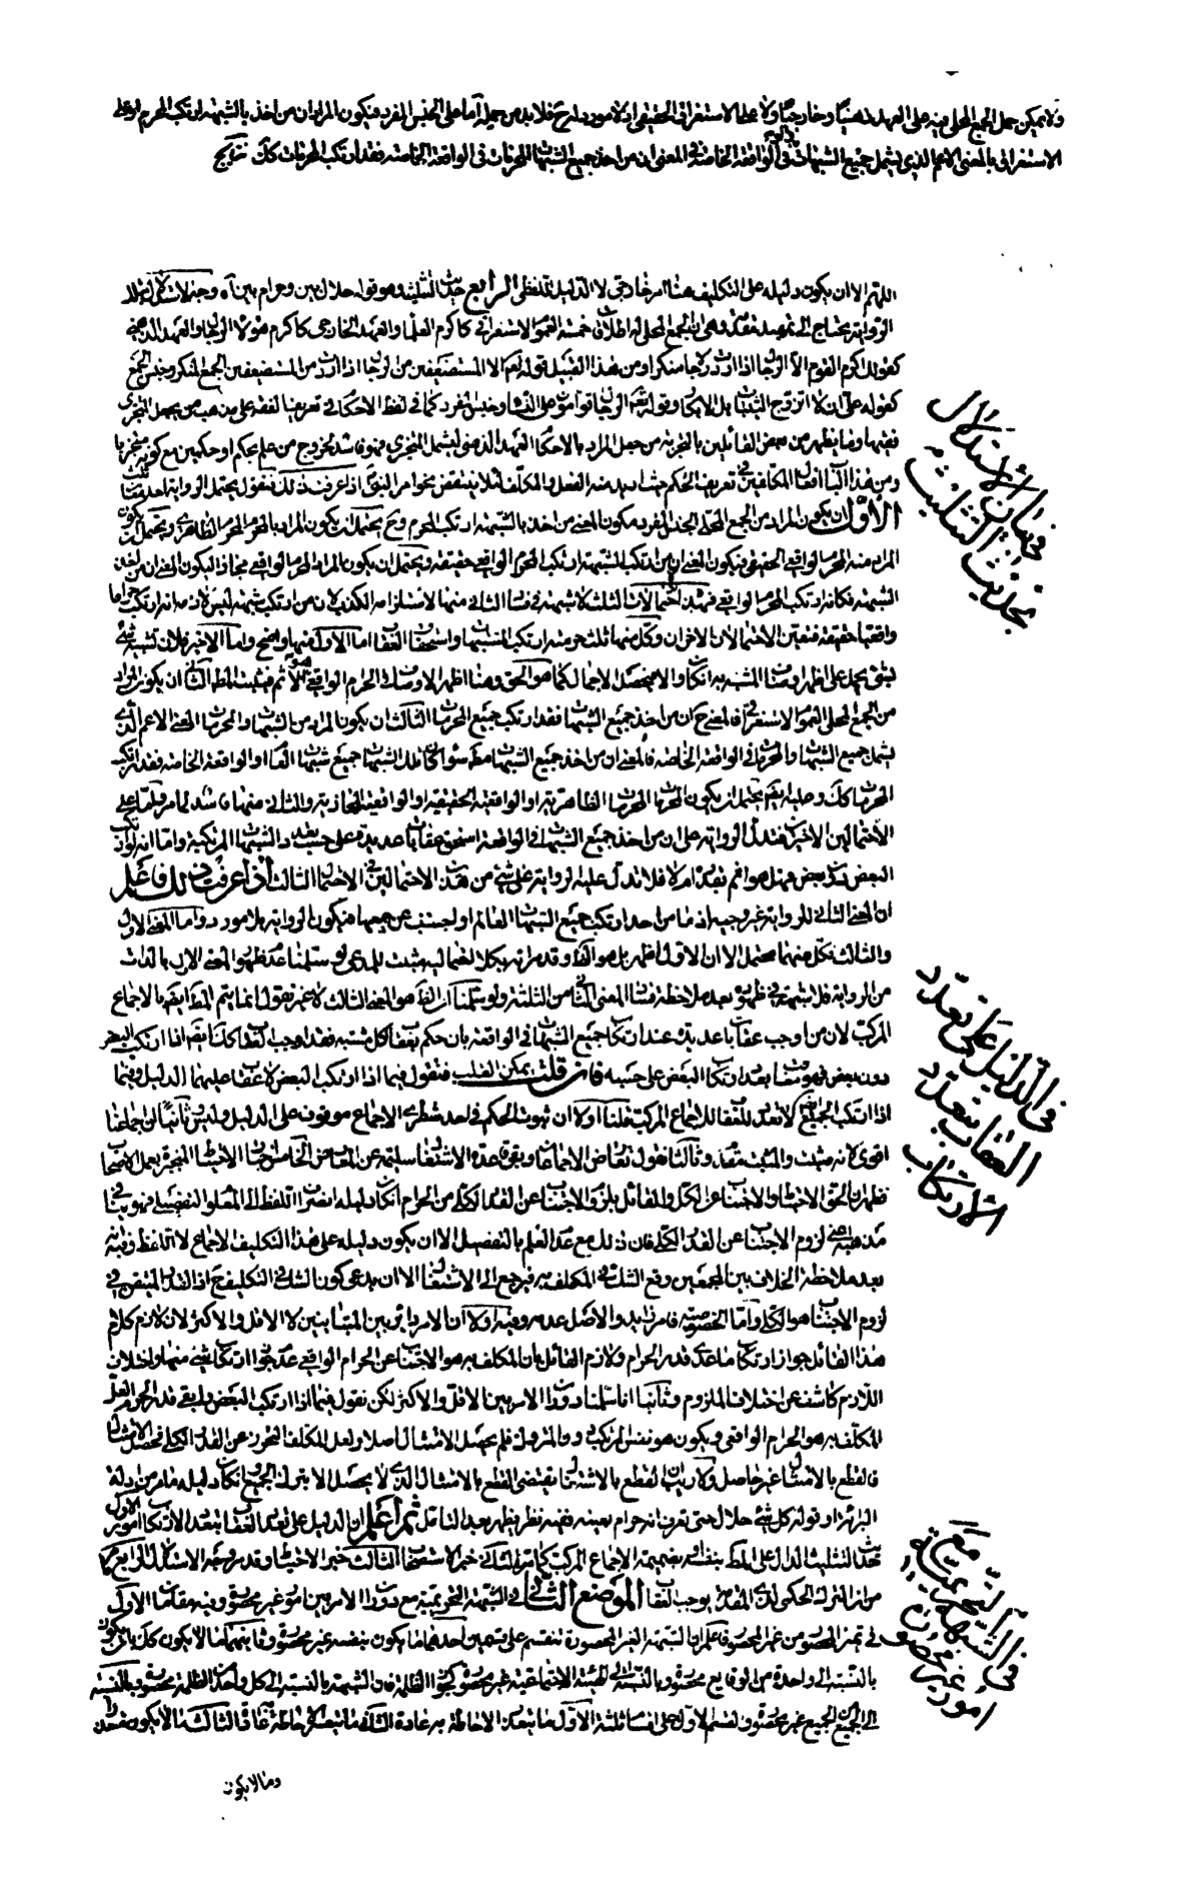 ولا يمكن حمل الجمع المحلى فيه على العهد ذهنيا وخارجيا ولا على الاستغراق الحقيقي اذ لا مورد له خارج فلا بد من حمله اما على الجنس المفرد فيكون المراد ان من اخذ بالشبهة ارتكب المحرم او على
الاستغراق بالمعنى الاعم الذي يشمل جميع الشبهات في الواقعة الخاصة فالمعنى ان من اخذ جميع الشبهات المحرمات في الواقعة الخاصة فقد ارتكب المحرمات كلا
اللهم الا ان يكون دليله على التكليف هنا امر خارجي لا الدليل اللفظي الرابع حديث التثليث وهو قوله حلال بين وحرام بين اه وجه الاستدلال
الرواية يحتاج الى تمهيد مقدمة وهي ان الجمع المحلى له اطلاق خمسة العموم الاستغراقي كاكرم العلماء والعهد الخارجي كاكرم هؤلاء الرجال والعهد الذهني
كقولك اكرم القوم الا الرجال اذا اردت رجالا منكرا ومن هذا القبيل قوله تعالى الا المستضعفين من الرجال اذا اريد من المستضعفين الجمع المنكر وجنس الجمع
كقوله على ان لا اتزوج الثيبات بل الابكار وقوله تعالى الرجال قوامون على النساء وجنس المفرد كما في لفظ الاحكام في تعريف الفقه على مذهب من يجعل المتجزي
فقيها وما يظهر من بعض القائلين بالتجزية من جعل المراد بالاحكام العهد الذهني ليشمل المتجزي فهو فاسد لخروج من علم بحكم او حكمين مع كونه متجزيا
ومن هذا الباب افعال المكلفين في تعريف الحكم حيث اريد منه الفعل والمكلف لئلا ينتقض بخواص النبي اذا عرفت ذلك فنقول يحتمل الرواية احد معان ثلث
الاول ان يكون المراد من الجمع المحلى الجنس المفرد فيكون المعنى من اخذ بالشبهة ارتكب المحرم وح يحتمل ان يكون المراد بالمحرم المحرم الظاهري ويحتمل ان يكون
المراد منه المحرم الواقعي الحقيقي فيكون المعنى ان من ارتكب الشبهة ارتكب المحرم الواقعي حقيقة ويحتمل ان يكون المراد المحرم الواقعي مجازا ليكون المعنى ان من اخذ
الشبهة فكانه ارتكب المحرم الواقعي فهذه احتمالات الثلثة لا شبهة في فساد الثاني منها لاستلزامه الكذب لان من ارتكب شبهة ليس لازمه انه ارتكب حراما
واقعيا حقيقة فتعين الاحتمالان الاخران وكل منهما يثبت حرمة ارتكاب المشتبهات واستحقاق العقاب اما الاول منهما واضح واما الاخير فلان تشبيه شيء
بشيء يحمل على اظهر اوصاف المشبه به ان كان والا فيحصل الاجمال كما هو الحق وهنا اظهر الاوصاف الحرام الواقعي هو الاثم فيثبت المط الثاني ان يكون المراد
من الجمع المحلى العموم الاستغراقي فالمعنى ح ان من اخذ جميع الشبهات فقد ارتكب جميع المحرمات الثالث ان يكون المراد من الشبهات والمحرمات المعنى الاعم الذي
يشمل جميع الشبهات والمحرمات في الواقعة الخاصة فالمعنى ان من اخذ جميع الشبهات مط سواء كان تلك الشبهات جميع شبهات العالم او الواقعة الخاصة فقد ارتكب
المحرمات كلا وعليه ايضا يحتمل ان يكون المحرمات المحرمات الظاهرية او الواقعية الحقيقية او الواقعية المجازية والثاني منها فاسد لما مر فبناء على
الاحتمالين الاخيرين فتدل الرواية على ان من اخذ جميع الشبهات في الواقعة استحق عقابا عديدة على حسب تعدد الشبهات المرتكبة واما انه لو ارتكب
البعض وترك البعض فهل هو اثم بقدره ام لا فلا تدل عليه الرواية على شيء من هذين الاحتمالين في الاحتمال الثالث اذا عرفت ذلك فاعلم
ان المعنى الثاني للرواية غير وجيه اذ ما من احد ارتكب جميع الشبهات العالم او اجتنب عن جميعها فيكون الرواية بلا مورد واما المعنى الاول
والثالث فكل منهما محتمل الا ان الاول اظهر بل هو الظ وقد مر انه بكلا احتماليه مثبت للمدعى ولو سلمنا عدم ظهور المعنى الاول بالذات
من الرواية فلا شبهة في ظهوره بعد ملاحظة فساد المعنى الثاني من الثلثة ولو سلمنا ان الظ هو المعنى الثالث لا غير فنقول انما يتم المط ايضا بالاجماع
المركب لان من اوجب عقابا عديدة عند ارتكاب جميع الشبهات في الواقعة بان حكم بعقاب كل مشتبه فقد اوجب العقاب كلا ايضا اذا ارتكب البعض
دون بعض فهو يثبت العقاب بعد ارتكاب البعض على حسبه فان قلت يمكن القلب فنقول فيما اذا ارتكب البعض لا عقاب عليه لعدم الدليل وفيما
اذا ارتكب الجميع لا تعدد للعقاب للاجماع المركب قلنا اولا ان ثبوت الحكم في احد شطري الاجماع موقوف على الدليل وليس ثانيا ان اجماعنا
اقوى لانه مثبت والمثبت مقدم وثالثا نقول تعارض الاجماعان وبقي قاعدة الاشتغال سليمة عن المعارض الخامس اخبار الاحتياط المنجبرة بعمل الاصحاب
فظهر ان الحق الاحتياط والاجتناب عن الكل والقائل بلزوم الاجتناب عن القدر الكلي من الحرام ان كان دليله انصراف اللفظ الى المعلوم التفصيلي فهو ينافي
مذهبه من لزوم الاجتناب عن القدر الكلي فان ذلك مع عدم العلم بالتفصيل الا ان يكون دليله على هذا التكليف الاجماع لا اللفظ وفيه انه
بعد ملاحظة الخلاف بين المجمعين وقع الشك في المكلف به فيرجع الى الاشتغال الا ان يدعى كون الشك في التكليف ح اذ القدر المتيقن في
لزوم الاجتناب هو الكلي واما الخصوصية فامر زايد والاصل عدمه وفيه اولا ان الامر دائر بين المتباينين لا الاقل والاكثر لان لازم كلام
هذا القائل جواز ارتكاب ما عدا قدر الحرام ولازم القائل بان المكلف به هو الاجتناب عن الحرام الواقعي عدم جواز ارتكاب شيء منهما واختلاف
اللازم كاشف عن اختلاف الملزوم وثانيا انا سلمنا دوران الامر بين الاقل والاكثر لكن نقول فيما اذا ارتكب البعض وابقى قدر الحرام لعل
المكلف به هو الحرام الواقعي ويكون هو نفس المرتكب دون المتروك فلم يحصل الامتثال اصلا ولعل المكلف التحرز عن القدر الكلي فحصل الامتثال
فالقطع بالامتثال غير حاصل ولا ريب ان القطع بالاشتغال يقتضي القطع بالامتثال الذي لا يحصل الا بترك الجميع وان كان دليله ما مر من ادلة
البرائة او قوله كل شيء حلال حتى تعرف انه حرام بعينه ففيه نظر يظهر بعد التامل ثم اعلم ان الدليل على تعدد العقاب بتعدد الارتكاب امور الاول
حديث التثليث الدال على المط بنفسه او بضميمة الاجماع المركب كما مر الثاني خبر الاستصحاب الثالث خبر الاحتياط وقد مر وجه الاستدلال الرابع ما
مر ان الترك الحكمي لذي المقدمة يوجب العقاب الموضع الثاني في الشبهة التحريمية مع دوران الامر بين امور غير محصورة وفيه مقامات الاول
في تميز المحصور من غير المحصور فاعلم ان الشبهة الغير المحصورة تنقسم على قسمين احدهما ما يكون بنفسه غير محصور وثانيهما ما لا يكون كك بل يكون
بالنسبة الى واحدة من الوقايع محصورة وبالنسبة الى الهيئة الاجتماعية غير محصورة كجوائز الظلمة فان الشبهة بالنسبة الى كل واحد من الظلمة محصورة وبالنسبة
الى الجميع غير محصورة والقسم الاول على اقسام ثلثة الاول ما يتعذر الاحاطة به عادة الثاني ما يتعسر الاحاطة به عادة الثالث ما لا يكون متعذرا
وما لا يكون
في بيان الاستدلال بحديث التثليث
في الدليل على تعدد العقاب بتعدد الارتكاب
في الشبهة التحريمية مع امور غير محصورة